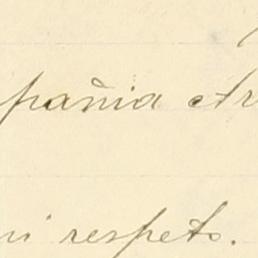 pañia Ar
ni respeto.